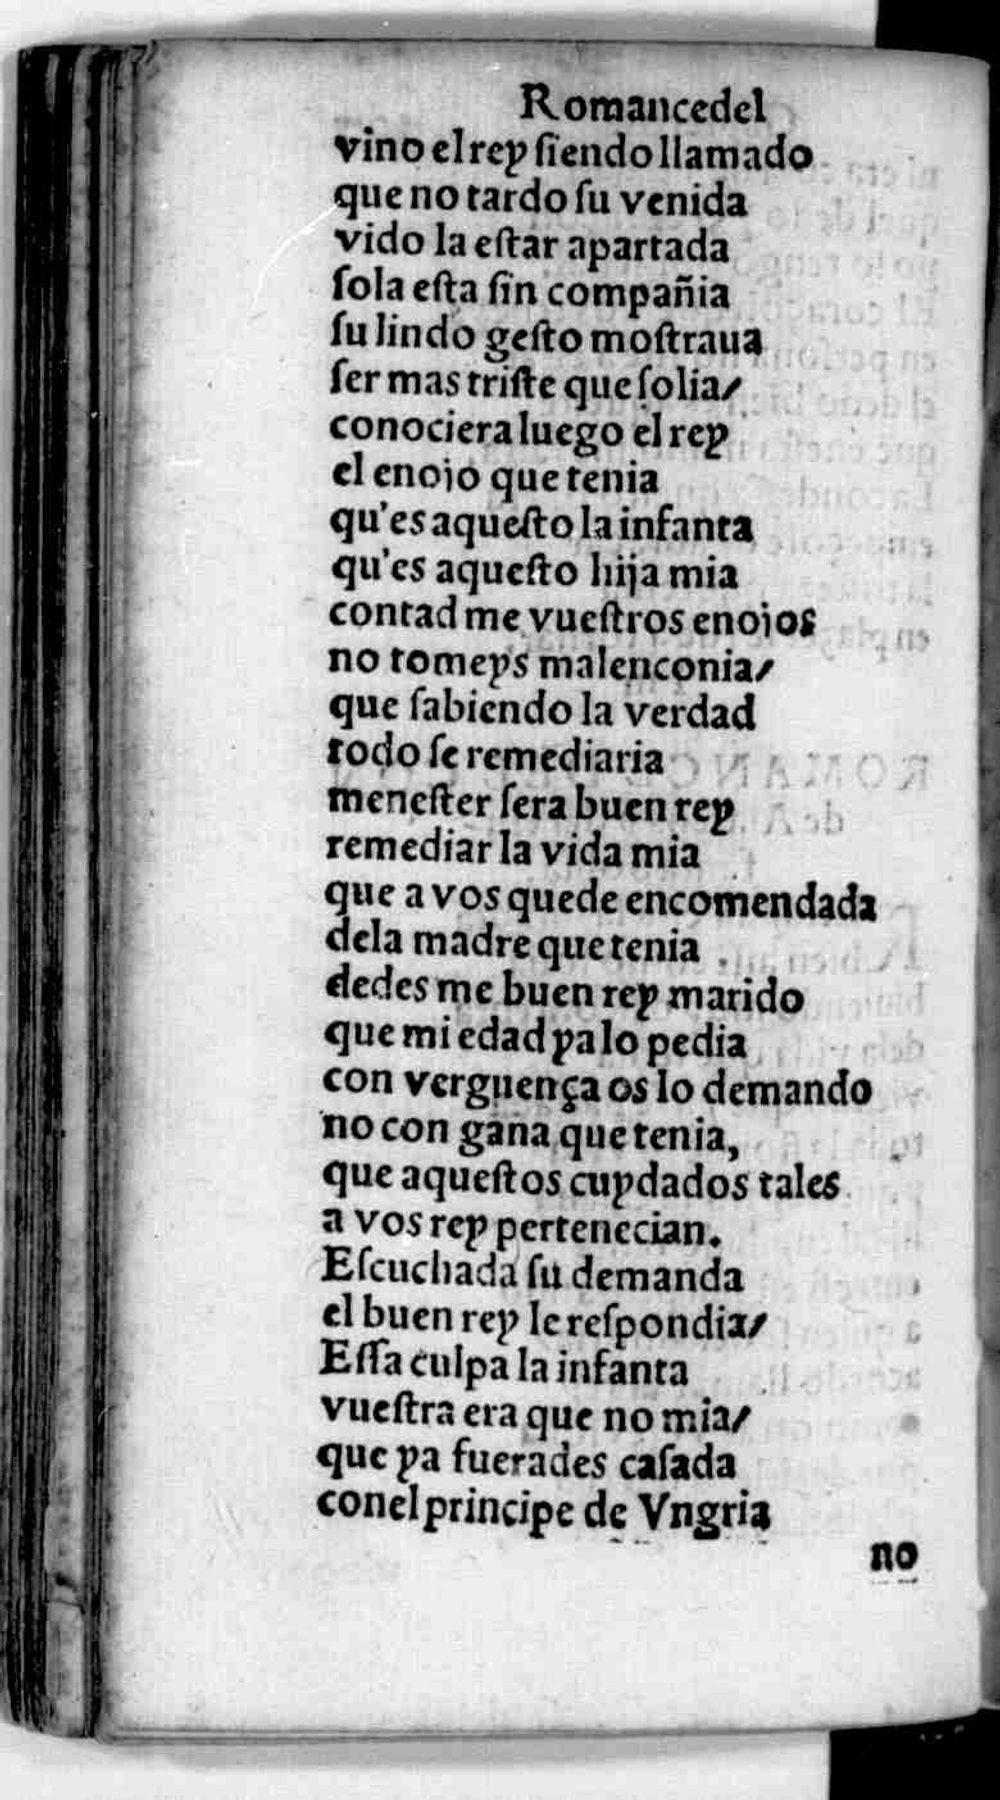 Romancedel
vino el rey ſiendo llamado
que no tardo ſu venida
vido la eſtar apartada
ſola eſta ſin compañia
ſu lindo geſto moſtraua
ſer mas triſte que ſolia/
conociera luego el rey
el enojo que tenia
qu'es aqueſto la infanta
qu'es aqueſto hija mia
contad me vueſtros enojos
no tomeys malenconia/
que ſabiendo la verdad
todo ſe remediaria
meneſter ſera buen rey
remediar la vida mia
que a vos quede encomendada
dela madre que tenia
dedes me buen rey marido
que mi edad ya lo pedia
con verguença os lo demando
no con gana que tenia,
que aqueſtos cuydados tales
a vos rey pertenecian.
Eſcuchada ſu demanda
el buen rey le reſpondia/
Eſſa culpa la infanta
vueſtra era que no mia/
que ya fuerades caſada
conel principe de Vngria
no